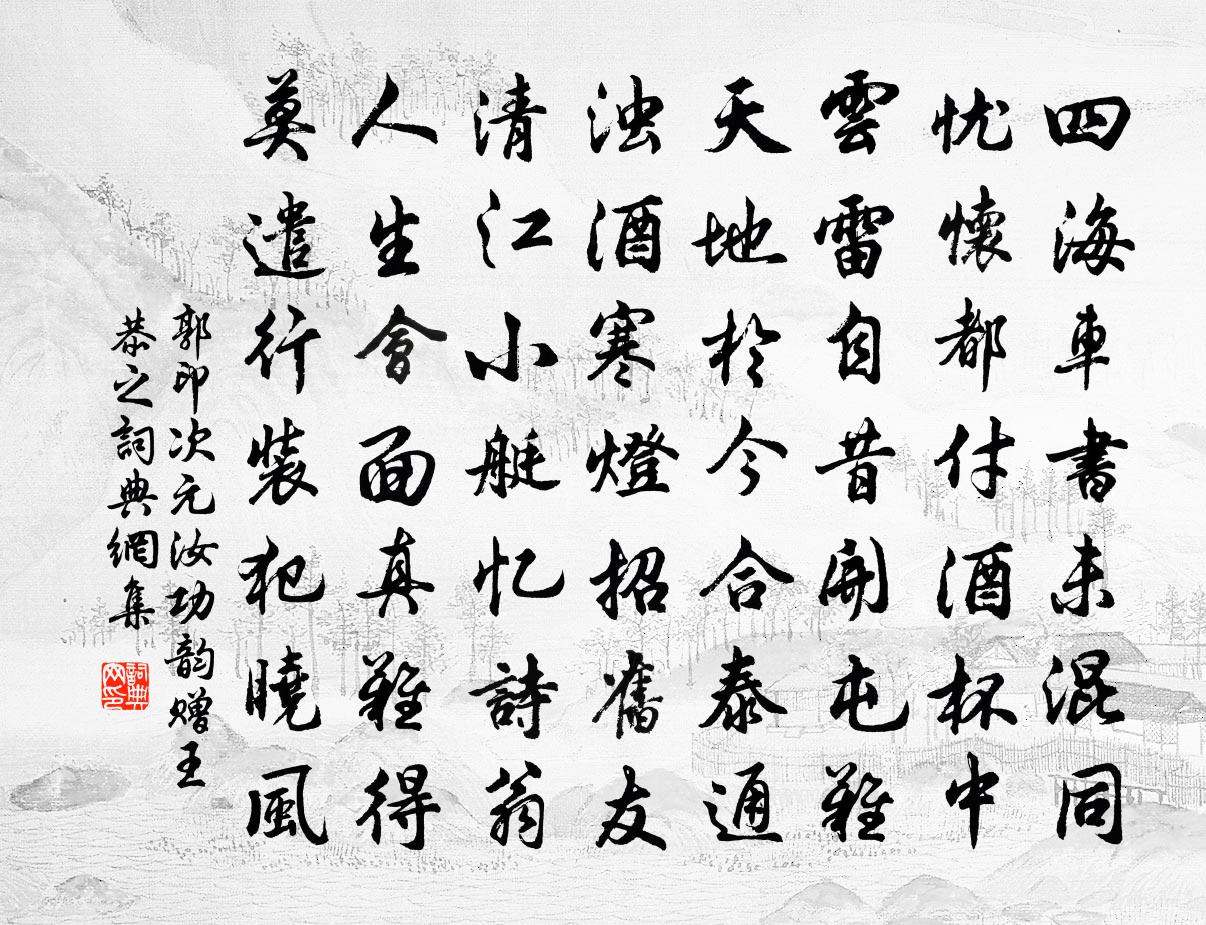 四海車書未混同
忧懷都付酒杯中
雲雷自昔開屯難
天地於今合泰通
浊酒寒燈招舊友
清江小艇忆詩翁
人生會面真難得
莫遣行裝犯曉風
郭印次元汝功韵赠王
恭之詞典網集
詞典
网印